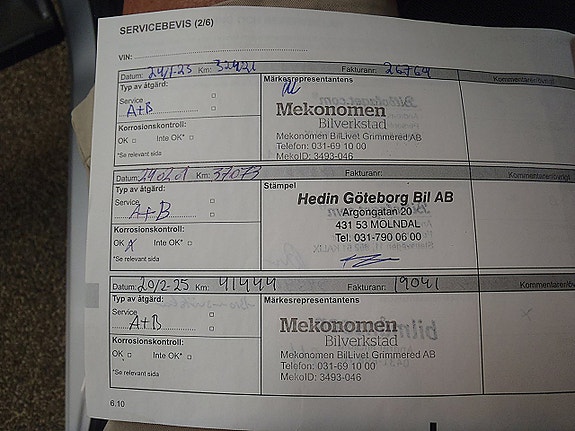 SERVICEBEVIS (2/6)
VIN:
Datum: Km: Fakturanr: 26764 Kommentarer/övrigt
Typ av åtgärd: Märkesrepresentantens
Service A+B
Mekonomen
Bilverkstad
Korrosionskontroll:
Mekonomen BilLivet Grimmered AB
OK Inte OK* Telefon: 031-69 10 00
*Se relevant sida MekoID: 3493-046
Datum: Km: 37073 Fakturanr: Kommentarer/övrigt
Typ av åtgärd: Stämpel
Service A+B
Hedin Göteborg Bil AB
Argongatan 20
Korrosionskontroll: 431 53 MÖLNDAL
OK Inte OK* Tel. 031-790 06 00
*Se relevant sida
Datum: 20/2-25 Km: 41444 Fakturanr: 19041 Kommentarer/övrigt
Typ av åtgärd: Märkesrepresentantens
Service A+B
Mekonomen
Bilverkstad
Korrosionskontroll:
Mekonomen BilLivet Grimmered AB
OK Inte OK* Telefon: 031-69 10 00
*Se relevant sida MekoID: 3493-046
6.10